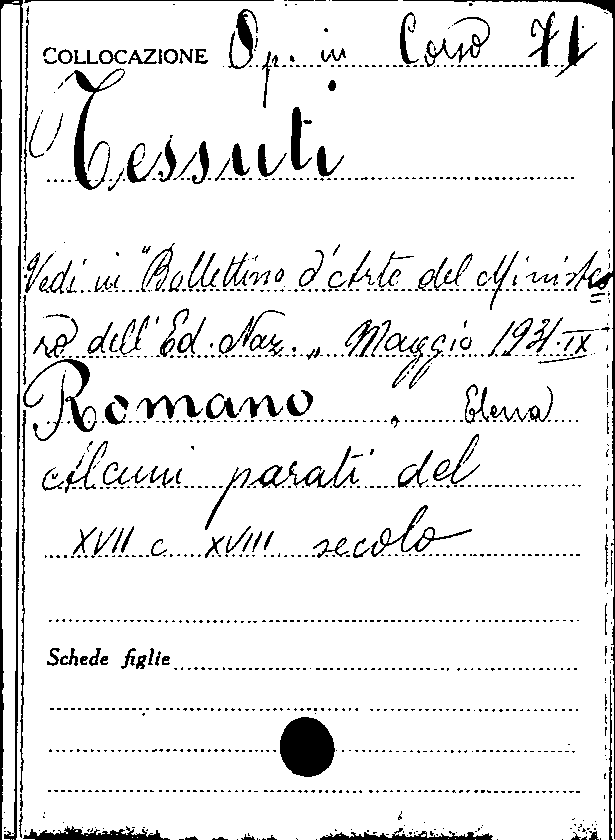 COLLOCAZIONE Op. in Corso 71
Tessuti
Vedi in "Bollettino d'Arte del Ministe=
ro dell'Ed. Naz. „ Maggio 1931·IX
Romano, Elena
Alcuni parati del
XVII e XVIII secolo
Schede figlie